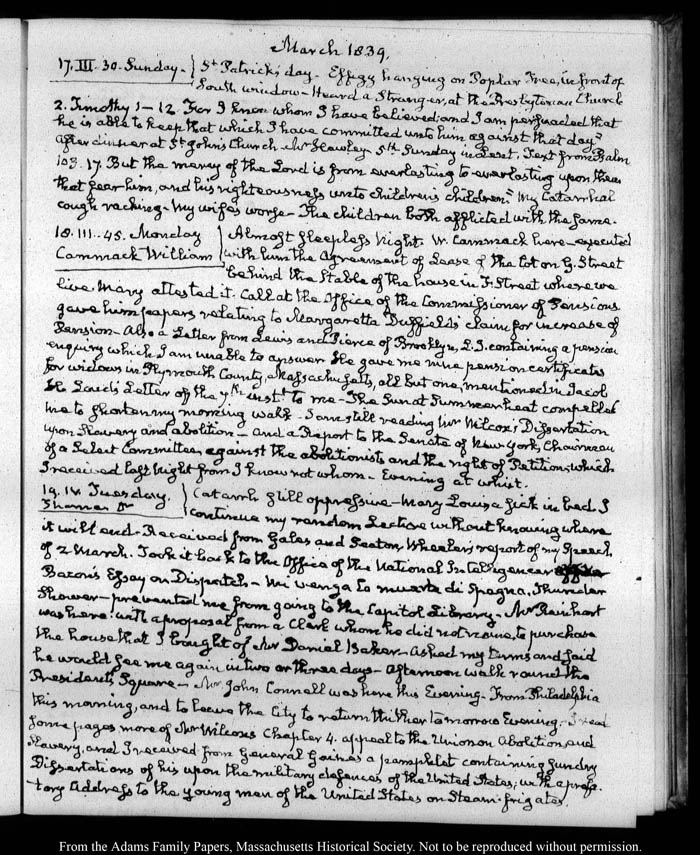 March 1839.
17. III. 30. Sunday - St Patrick's day - Effigy hanging on Poplar Tree, in front of
South window - Heard a Stranger, at the Presbyterian Church
2. Timothy 1-12 For I know whom I have believed, and I am persuaded that
he is able to keep that which I have committed unto him against that day"
After dinner at St John's Church - Mr Hawley 5th Sunday in Lent. Text from Psalm
103. 17. But the mercy of the Lord is from everlasting to everlasting upon them
that fear him, and his righteousness unto children's children." My Catarrhal
cough racking - My wife's worse - The children both afflicted with the same.
18. III. 45. Monday Almost sleepless Night. W. Cammack here - executed
Cammack William with him the Agreement of Lease of the lot on G. Street
behind the Stable of the house in F. Street where we
live. Mary attested it. Call at the Office of the Commissioner of Pensions
gave him papers relating to Margaretta Duffield's claim for increase of
Pension - Also a Letter from Lewis and Pierce of Brooklyn, L.I. containing a pension
enquiry which I am unable to answer He gave me nine pension certificates
for widows in Plymouth County, Massachusetts, all but one, mentioned in Jacob
H. Loud's Letter of the 7th inst. to me - The Sun at Summer heat compelled
me to shorten my morning walk - I am still reading Mr Wilcox's Dissertation
upon Slavery and abolition - and a Report to the Senate of New York, Chairman
of a Select Committee, against the abolitionists and the right of Petition, which
I received last Night from I know not whom - Evening at whist.
19. IV. Tuesday. Catarrh still oppressive - Mary Louisa sick in bed. I
continue my random Lecture without knowing where
it will end - Received from Gales and Seaton, Wheeler's report of my Speech
of 2 March. Took it back to the Office of the National Intelligencer
Bacon's Essay on Dispatch - Mi venga la muerte di Spagna. Thunder
Shower - prevented me from going to the Capitol Library. Mr Reinhart
was here with a proposal from a Clerk whom he did not name, to purchase
the house that I bought of Mr Daniel Baker - asked my terms and said
he would see me again in two or three days - Afternoon walk round the
President's Square - Mr John Connell was here this Evening - From Philadelphia
this morning, and to leave the City to return thither tomorrow Evening - I read
some pages more of Mr Wilcox's Chapter 4. appeal to the Union on Abolition and
Slavery, and I received from General Gaines a pamphlet containing sundry
Dissertations of his upon the military defences of the United States; with a prefa-
tory Address to the young men of the United States on Steam-frigates.
From the Adams Family Papers, Massachusetts Historical Society. Not to be reproduced without permission.